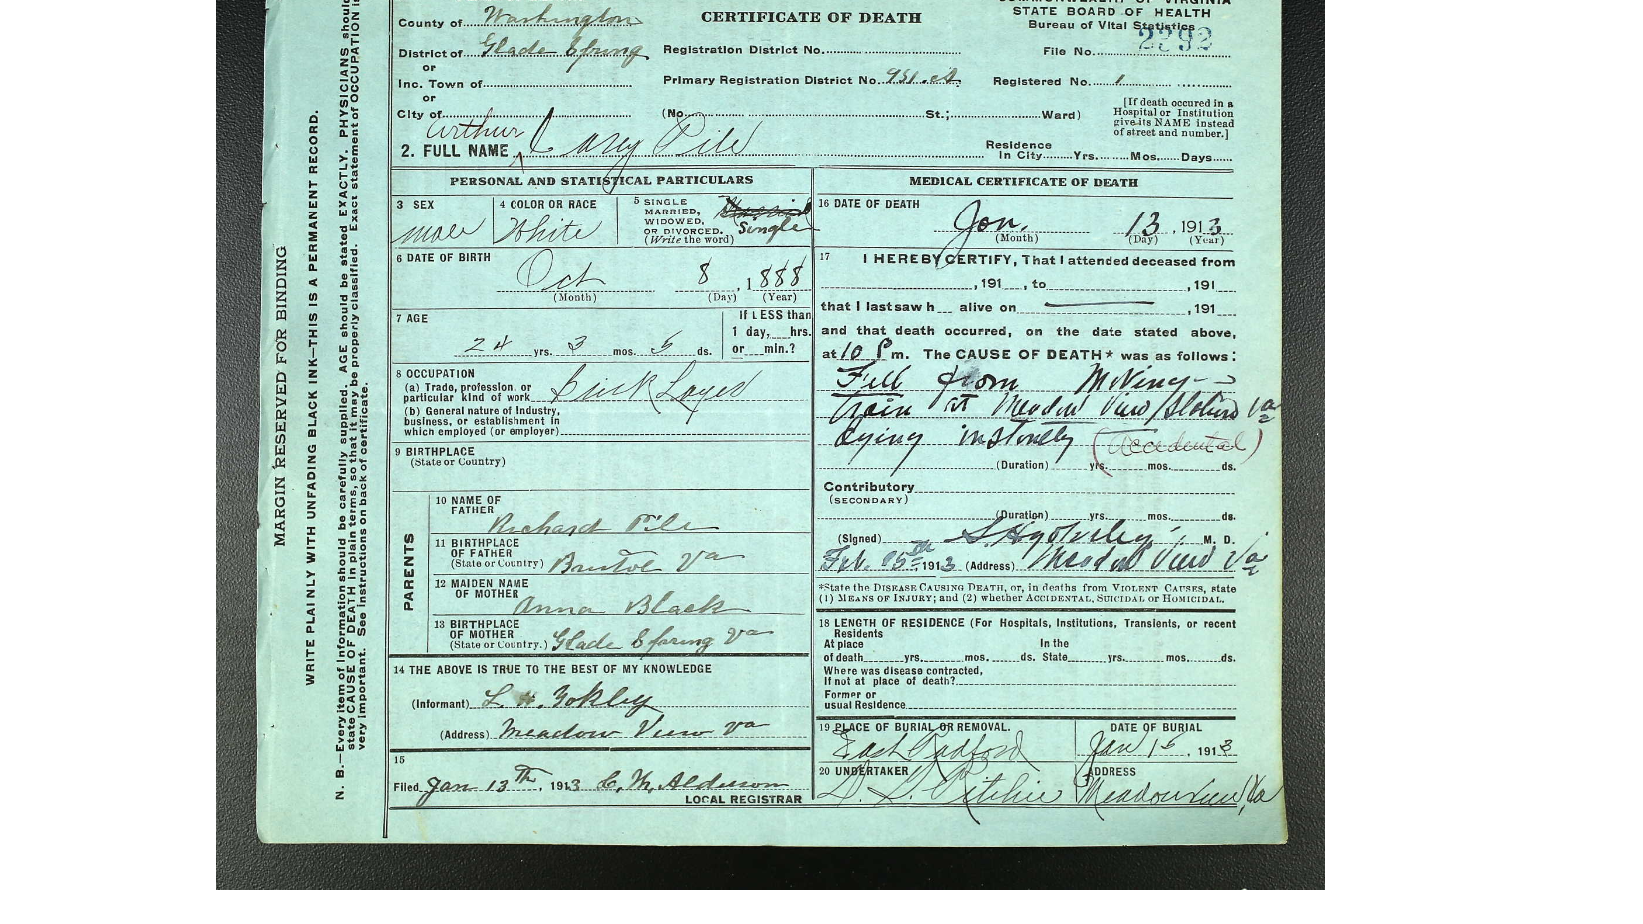 COMMONWEALTH OF VIRGINIA
CERTIFICATE OF DEATH
STATE BOARD OF HEALTH
Bureau of Vital Statistics
County of Washington
District of Glade Spring
Registration District No.
File No. 2392
or
Inc. Town of
Primary Registration District No. 951
Registered No. 1
or
City of
(No. St.; Ward)
[If death occured in a
Hospital or Institution
give its NAME instead
of street and number.]
Arthur
2. FULL NAME Cary Pile
Residence
In City Yrs. Mos. Days
PERSONAL AND STATISTICAL PARTICULARS
3 SEX
male
4 COLOR OR RACE
White
5 SINGLE
MARRIED,
WIDOWED,
OR DIVORCED.
(Write the word)
Single
6 DATE OF BIRTH
Oct 8, 1888
(Month) (Day) (Year)
7 AGE
24 yrs. 3 mos. 5 ds.
If LESS than
1 day, hrs.
or min.?
8 OCCUPATION
(a) Trade, profession, or
particular kind of work
(b) General nature of Industry,
business, or establishment in
which employed (or employer)
9 BIRTHPLACE
(State or Country)
PARENTS
10 NAME OF
FATHER
Richard Pile
11 BIRTHPLACE
OF FATHER
(State or Country) Bristol Va
12 MAIDEN NAME
OF MOTHER
Anna Black
13 BIRTHPLACE
OF MOTHER
(State or Country.) Glade Spring Va
14 THE ABOVE IS TRUE TO THE BEST OF MY KNOWLEDGE
(Informant) L. H. Yokley
(Address) Meadow View Va
15
Filed Jan 13th, 1913 C. M. Alderson
LOCAL REGISTRAR
MEDICAL CERTIFICATE OF DEATH
16 DATE OF DEATH
Jan. 13, 1913
(Month) (Day) (Year)
17 I HEREBY CERTIFY, That I attended deceased from
, 191 , to , 191
that I last saw h alive on , 191
and that death occurred, on the date stated above,
at 10 P m. The CAUSE OF DEATH* was as follows:
Fell from Moving
train at Meadow View Station Va
dying instantly (Accidental)
(Duration) yrs. mos. ds.
Contributory
(SECONDARY)
(Duration) yrs. mos. ds.
(Signed) M. D.
Feb. 15th 1913 (Address) Meadow View Va
*State the DISEASE CAUSING DEATH, or, in deaths from VIOLENT CAUSES, state
(1) MEANS OF INJURY; and (2) whether ACCIDENTAL, SUICIDAL or HOMICIDAL.
18 LENGTH OF RESIDENCE (For Hospitals, Institutions, Transients, or recent
Residents
At place In the
of death yrs. mos. ds. State yrs. mos. ds.
Where was disease contracted,
If not at place of death?
Former or
usual Residence
19 PLACE OF BURIAL OR REMOVAL.
East Radford
DATE OF BURIAL
Jan 15, 1913
20 UNDERTAKER
D. L. Pitchie
ADDRESS
Meadowview, Va
MARGIN RESERVED FOR BINDING
WRITE PLAINLY WITH UNFADING BLACK INK—THIS IS A PERMANENT RECORD.
N. B.—Every item of Information should be carefully supplied. AGE should be stated EXACTLY. PHYSICIANS should
state CAUSE OF DEATH in plain terms, so that it may be properly classified. Exact statement of OCCUPATION is
very important. See instructions on back of certificate.